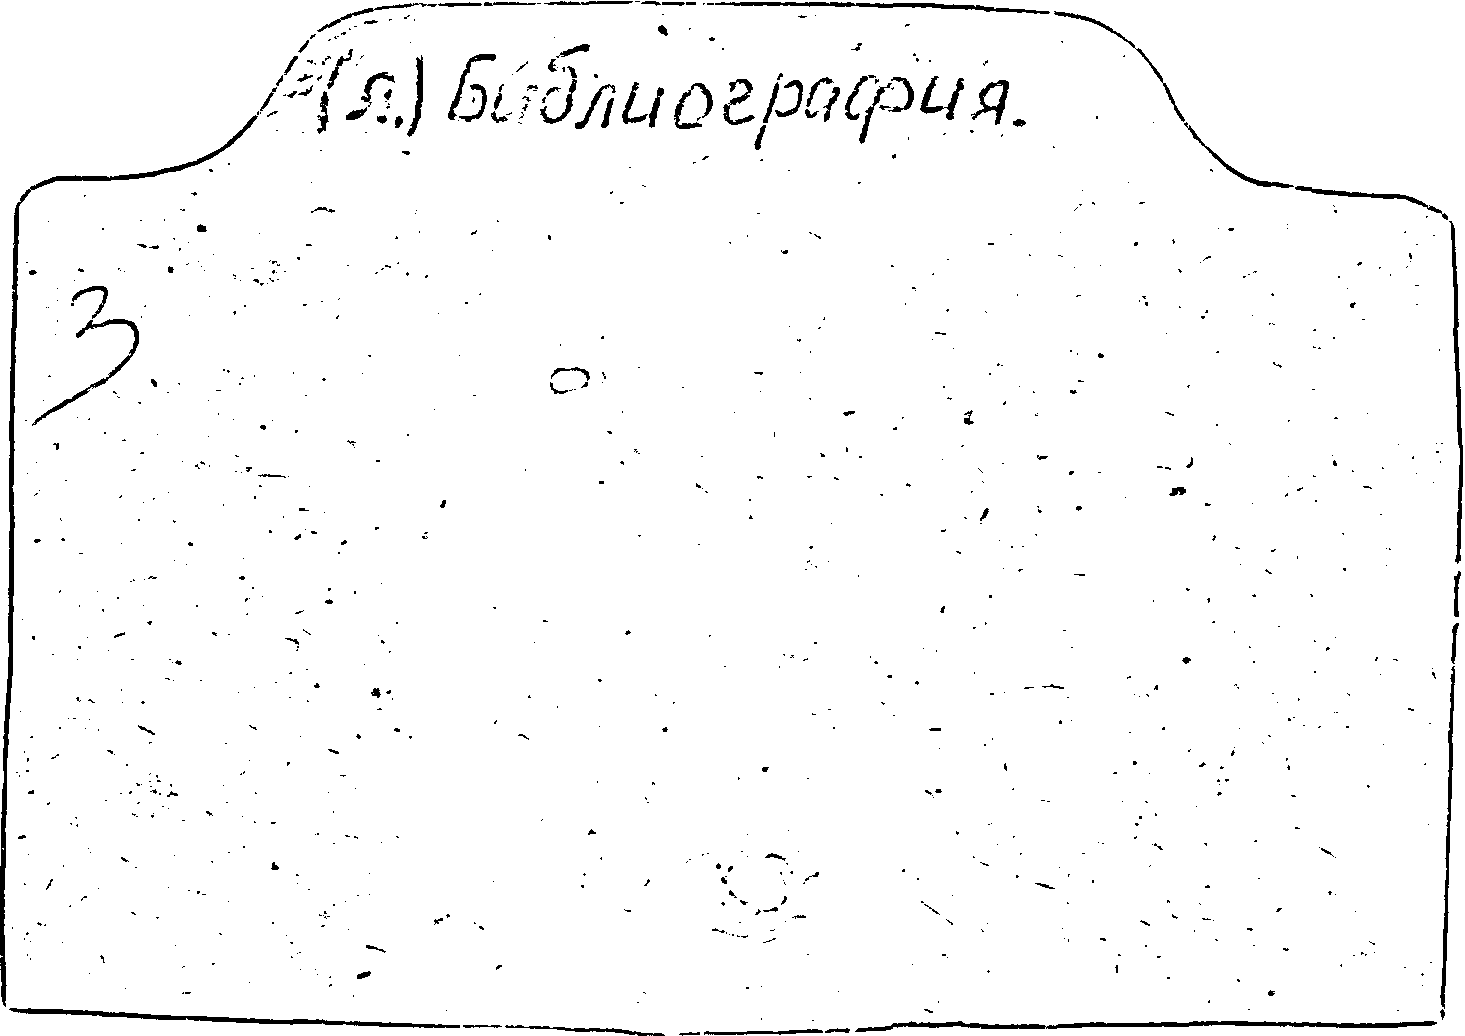 (л.) Библиография.
3